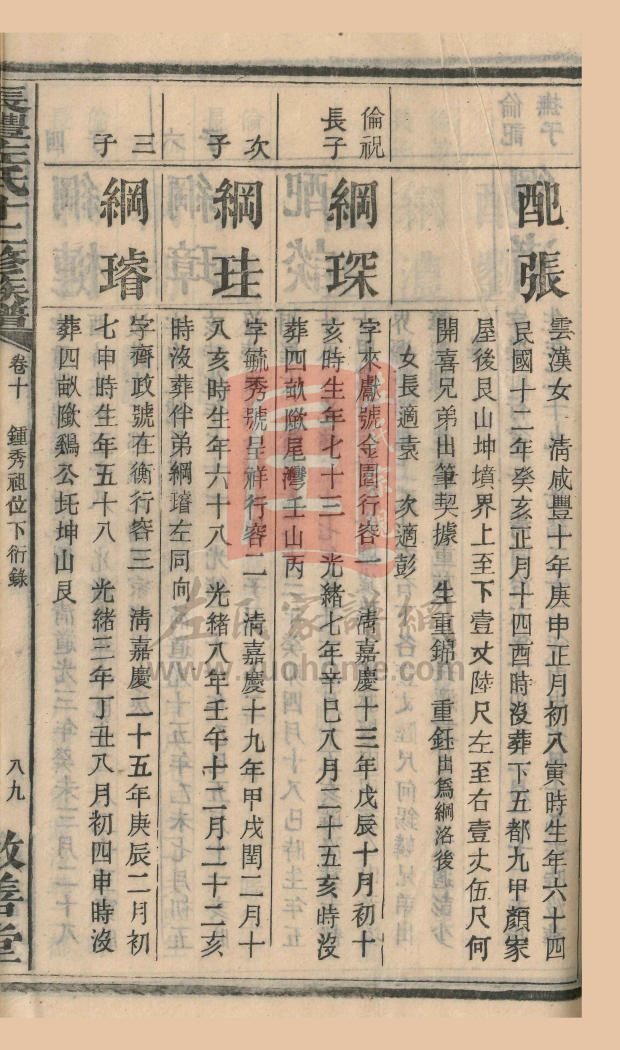 配張
雲漢女　清咸豐十年庚申正月初八寅時生年六十四
民國十二年癸亥正月十四酉時沒葬下五都九甲顏家
屋後艮山坤墳界上至下壹丈陸尺左至右壹丈伍尺何
開喜兄弟出筆契據　生重錦　重鈺出爲綱洛後
女長適袁　次適彭
倫祝長子
綱琛
字來獻號金園行容一　清嘉慶十三年戊辰十月初十
亥時生年七十三　光緒七年辛巳八月二十五亥時沒
葬四畝墩尾灣壬山丙
次子
綱珪
字毓秀號呈祥行容二　清嘉慶十九年甲戌閏二月十
八亥時生年六十八　光緒八年壬午十二月二十二亥
時沒葬伴弟綱璿左同向
三子
綱璿
字齊政號在衡行容三　清嘉慶二十五年庚辰二月初
七申時生年五十八　光緒三年丁丑八月初四申時沒
葬四畝墩鷄公坬坤山艮
長豐左氏十二修族譜
卷十　鍾秀祖位下衍錄
八九
敦善堂
左氏家譜網
www.zuohome.com